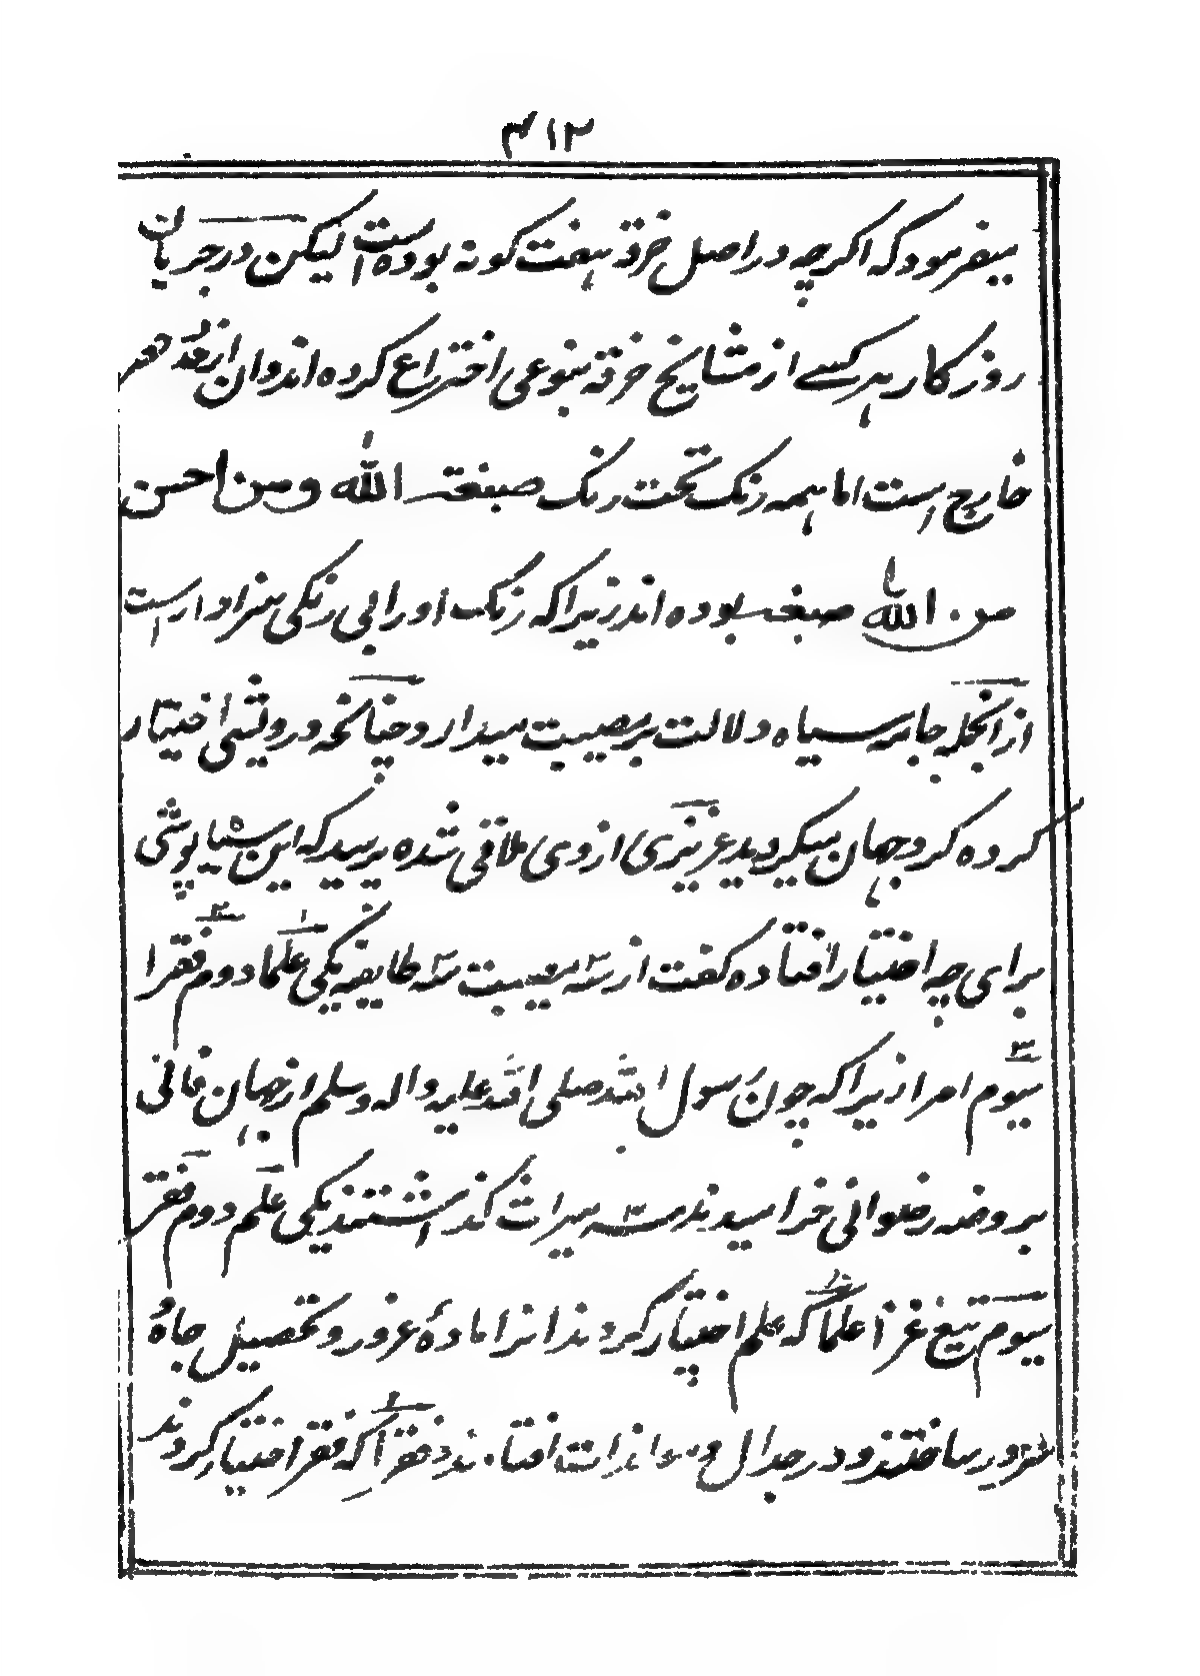 ۴۱۲
میفرمود که اکرچه در اصل خرقه هفت کونه بوده است لیکن در جریان
روزکار هر کسے از مشایخ خرقه بنوعی اختراع کرده اند و ان از عد هصر
خارج است اما همه رنک تحت رنک صبغة الله و من احسن
من الله صبغه بوده اند زیرا که رنک اورا بی رنکی سزاوار است
از انجمله جامه سیاه دلالت بر مصیبت میدارد چنانچه درویشی اختیار
کرده کرد جهان میکردید عزیزی از وی ملاقی شده پرسید که این سیاه پوشی
برای چه اختیار افتاده کفت از سه مصیبت سه طایفه یکی علما دوم فقرا
سیوم امرا زیرا که چون رسول الله صلی الله علیه و اله و سلم از جهان فانی
بروضه رضوانی خرامیدند سه میراث کذاشتند یکی علم دوم فقر
سیوم تیغ غزا علما که علم اختیار کردند انرا ماده غرور و تحصیل جاه
ضرور ساختند و در جدال و افتادند فقرا که فقر اختیار کردند